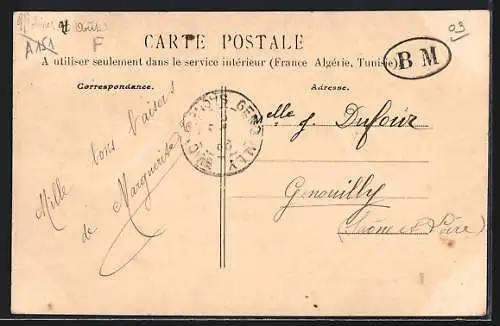 A151
F
03
CARTE POSTALE
A utiliser seulement dans le service intérieur (France Algérie, Tunisie)
B M
Correspondance.
Adresse.
Mille bons baisers
de Marguerite
elle J. Dufour
Genouilly
(Saône et Loire)